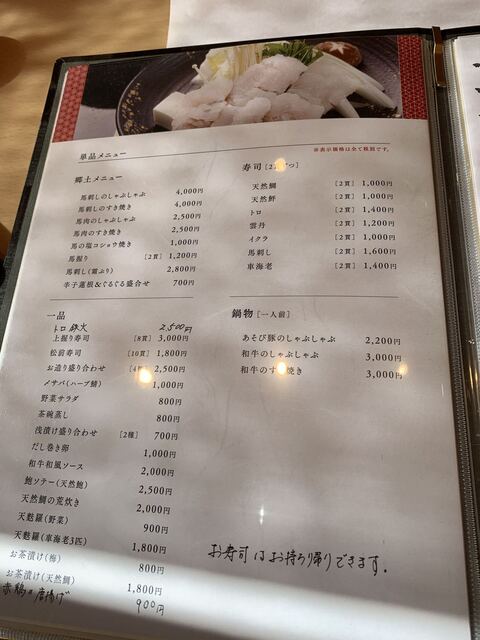 単品メニュー
※表示価格は全て税別です。
郷土メニュー
馬刺しのしゃぶしゃぶ 4,000円
馬刺しのすき焼き 4,000円
馬肉のしゃぶしゃぶ 2,500円
馬肉のすき焼き 2,500円
馬の塩コショウ焼き 1,000円
馬握り [2貫] 1,200円
馬刺し(霜ふり) 2,800円
辛子蓮根&ぐるぐる盛合せ 700円
寿司
天然鯛 [2貫] 1,000円
天然鮃 [2貫] 1,000円
トロ [2貫] 1,400円
雲丹 [2貫] 1,200円
イクラ [2貫] 1,000円
馬刺し [2貫] 1,600円
車海老 [2貫] 1,400円
一品
トロ鉄火 2,500円
上握り寿司 [8貫] 3,000円
松前寿司 [10貫] 1,800円
お造り盛り合わせ 2,500円
メサバ(ハーブ鯖) 1,000円
野菜サラダ 800円
茶碗蒸し 800円
浅漬け盛り合わせ [2種] 700円
だし巻き卵 1,000円
和牛和風ソース 2,000円
鮑ソテー(天然鮑) 2,500円
天然鯛の荒炊き 2,000円
天麩羅(野菜) 900円
天麩羅(車海老3匹) 1,800円
お茶漬け(梅) 800円
お茶漬け(天然鯛) 1,800円
赤鶏の唐揚げ 900円
鍋物 [一人前]
あそび豚のしゃぶしゃぶ 2,200円
和牛のしゃぶしゃぶ 3,000円
和牛のすき焼き 3,000円
お寿司はお持ち帰りできます。